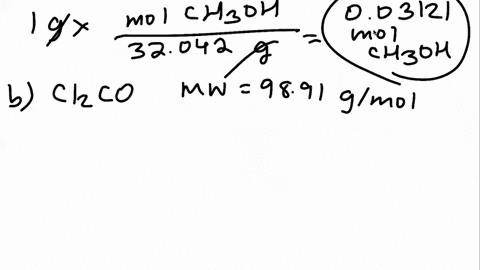 1 g x mol CH3OH / 32.042 g = 0.03121 mol CH3OH
b) Cl2CO MW = 98.91 g/mol